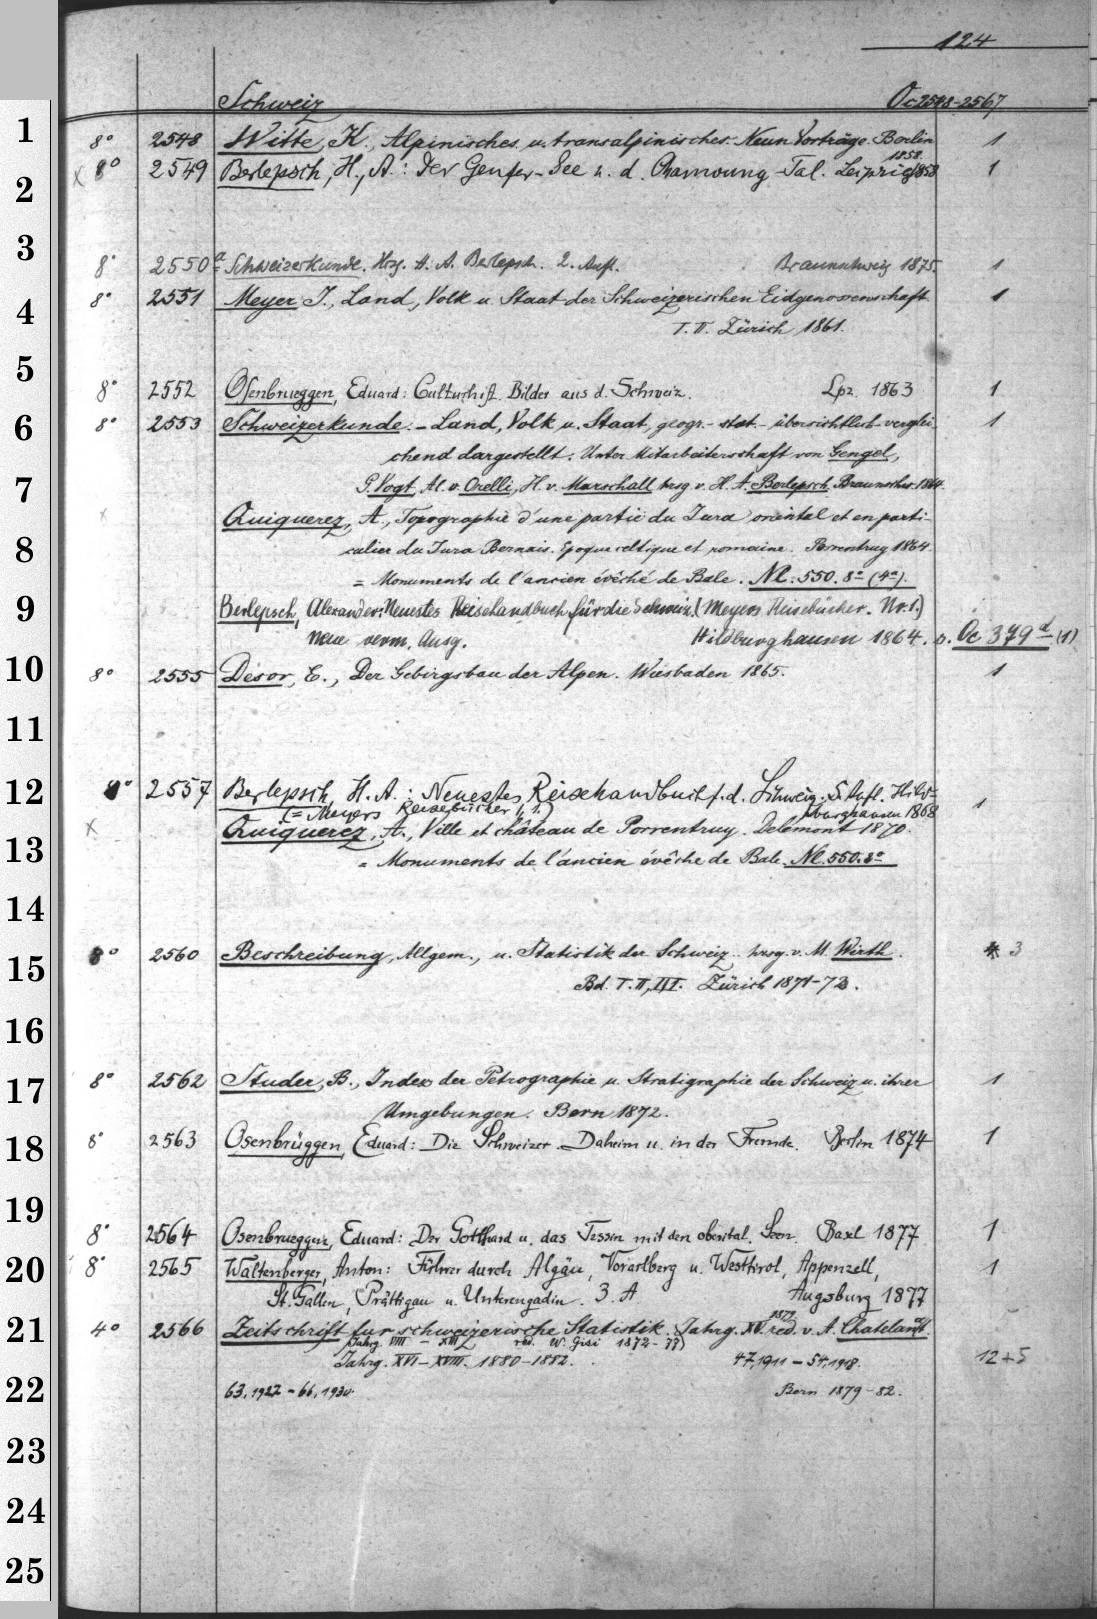 124
Schweiz Oc2548-2567
1 8° 2548 Witte, K., Alpinisches u. transalpinisches. Neun Vorträge. Berlin 1858. 1
2 x 8° 2549 Berlepsch, H., A.: Der Genfer-See u. d. Chamouny-Tal. Leipzig 1858 1
3 8° 2550a Schweizerkunde. Hrsg. H. A. Berlepsch. 2. Aufl. Braunschweig 1875. 1
4 8° 2551 Meyer J., Land, Volk u. Staat der Schweizerischen Eidgenossenschaft 1
T. II. Zürich 1861.
5 8° 2552 Osenbrueggen, Eduard: Culturhist. Bilder aus d. Schweiz. Lpz. 1863 1
6 8° 2553 Schweizerkunde. - Land, Volk u. Staat, geogr.- stat.- übersichtlich-verglei- 1
chend dargestellt. Unter Mitarbeiterschaft von Gengel,
7 P. Vogt, Al. v. Orelli, H. v. Marschall hrsg v. H. A. Berlepsch. Braunschw. 1864.
x Quiquerez, A., Topographie d'une partie du Jura oriental et en parti-
8 culier du Jura Bernois. Epoque celtique et romaine. Porrentruy 1864.
= Monuments de l'ancien évêché de Bale. Nl. 550. 8° (4a).
9 Berlepsch, Alexander: Neuestes Reisehandbuch für die Schweiz. (Meyers Reisebücher. Nr. 1.)
Neue verm. Ausg. Hildburghausen 1864. s. Oc 379d (1)
10 8° 2555 Desor, E., Der Gebirgsbau der Alpen. Wiesbaden 1865. 1
11
12 8° 2557 Berlepsch, H. A.: Neuestes Reisehandbuch f. d. Schweiz. 5. Aufl. Hild- 1
(= Meyers Reisebücher, 1.) burghausen 1868
x Quiquerez, A., Ville et château de Porrentruy. Delémont 1870.
13 = Monuments de l'ancien évêche de Bale. Nl. 550.8°
14
15 8° 2560 Beschreibung, Allgem., u. Statistik der Schweiz.. hrsg. v. M. Wirth. 3
Bd. I. II, III. Zürich 1871-73.
16
17 8° 2562 Studer, B., Index der Petrographie u. Stratigraphie der Schweiz u. ihrer 1
Umgebungen. Bern 1872.
18 8° 2563 Osenbrüggen, Eduard: Die Schweizer. Daheim u. in der Fremde. Berlin 1874 1
19 8° 2564 Osenbrueggen, Eduard: Der Gotthard u. das Tessin mit den oberital. Seen. Basel 1877 1
20 8° 2565 Waltenberger, Anton: Führer durch Algäu, Vorarlberg u. Westtirol, Appenzell, 1
St. Gallen, Prättigau u. Unterengadin. 3. A Augsburg 1877
21 4° 2566 Zeitschrift für schweizerische Statistik. Jahrg. XV. 1879 red. v. A. Chatelanat.
Jahrg. VIII - XIII, red. W. Gisi 1872-77)
Jahrg. XVI-XVIII. 1880-1882. 47,1911 - 54,1918. 12+5
22 63,1927 - 66,1930. Bern 1879-82.
23
24
25